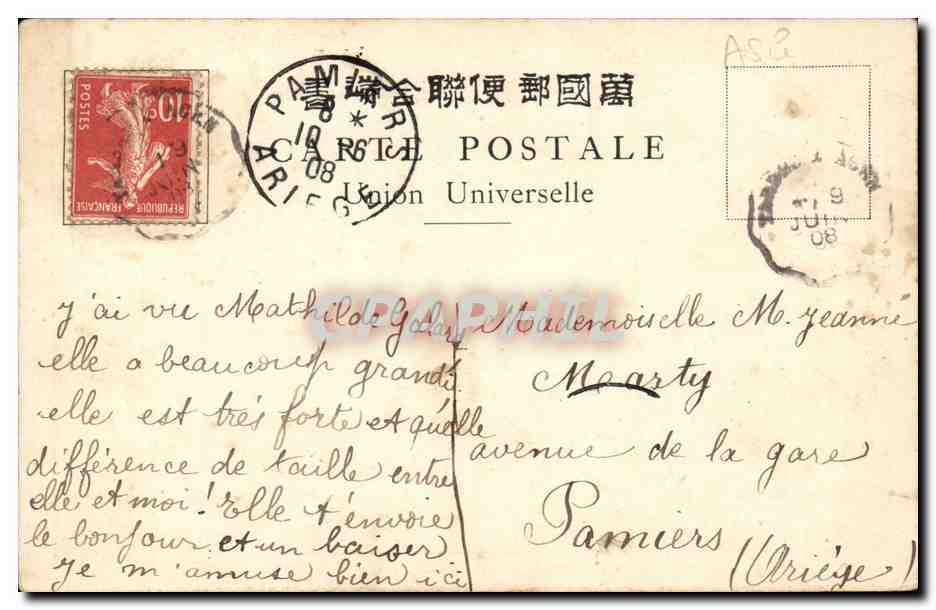 ASIE
萬國郵便聯合端書
CARTE POSTALE
Union Universelle
PAMIERS
* 
10 -6
08
ARIEGE
10c
POSTES
REPUBLIQUE FRANÇAISE
AGEN
9
JUIN
08
CPAPHIL
J'ai vu Mathilde Galary
elle a beaucoup grandi
elle est très forte et quelle
différence de taille entre
elle et moi! Elle t'envoie
le bonjour et un baiser
Je m'amuse bien ici
Mademoiselle M. Jeanne
Marty
avenue de la gare
Pamiers
(Ariège)